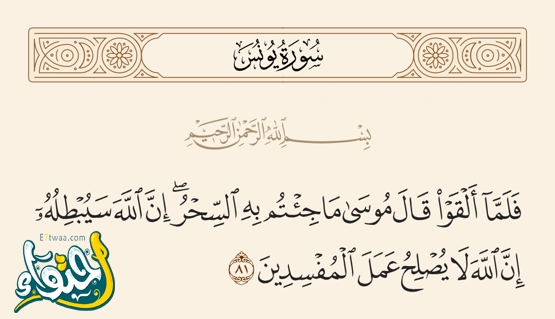 سُورَةُ يُونُسَ
بِسْمِ ٱللَّهِ ٱلرَّحْمَٰنِ ٱلرَّحِيمِ
فَلَمَّآ أَلْقَوْا۟ قَالَ مُوسَىٰ مَا جِئْتُم بِهِ ٱلسِّحْرُ ۖ إِنَّ ٱللَّهَ سَيُبْطِلُهُۥٓ
إِنَّ ٱللَّهَ لَا يُصْلِحُ عَمَلَ ٱلْمُفْسِدِينَ ٨١
E7twaa.com
احتواء